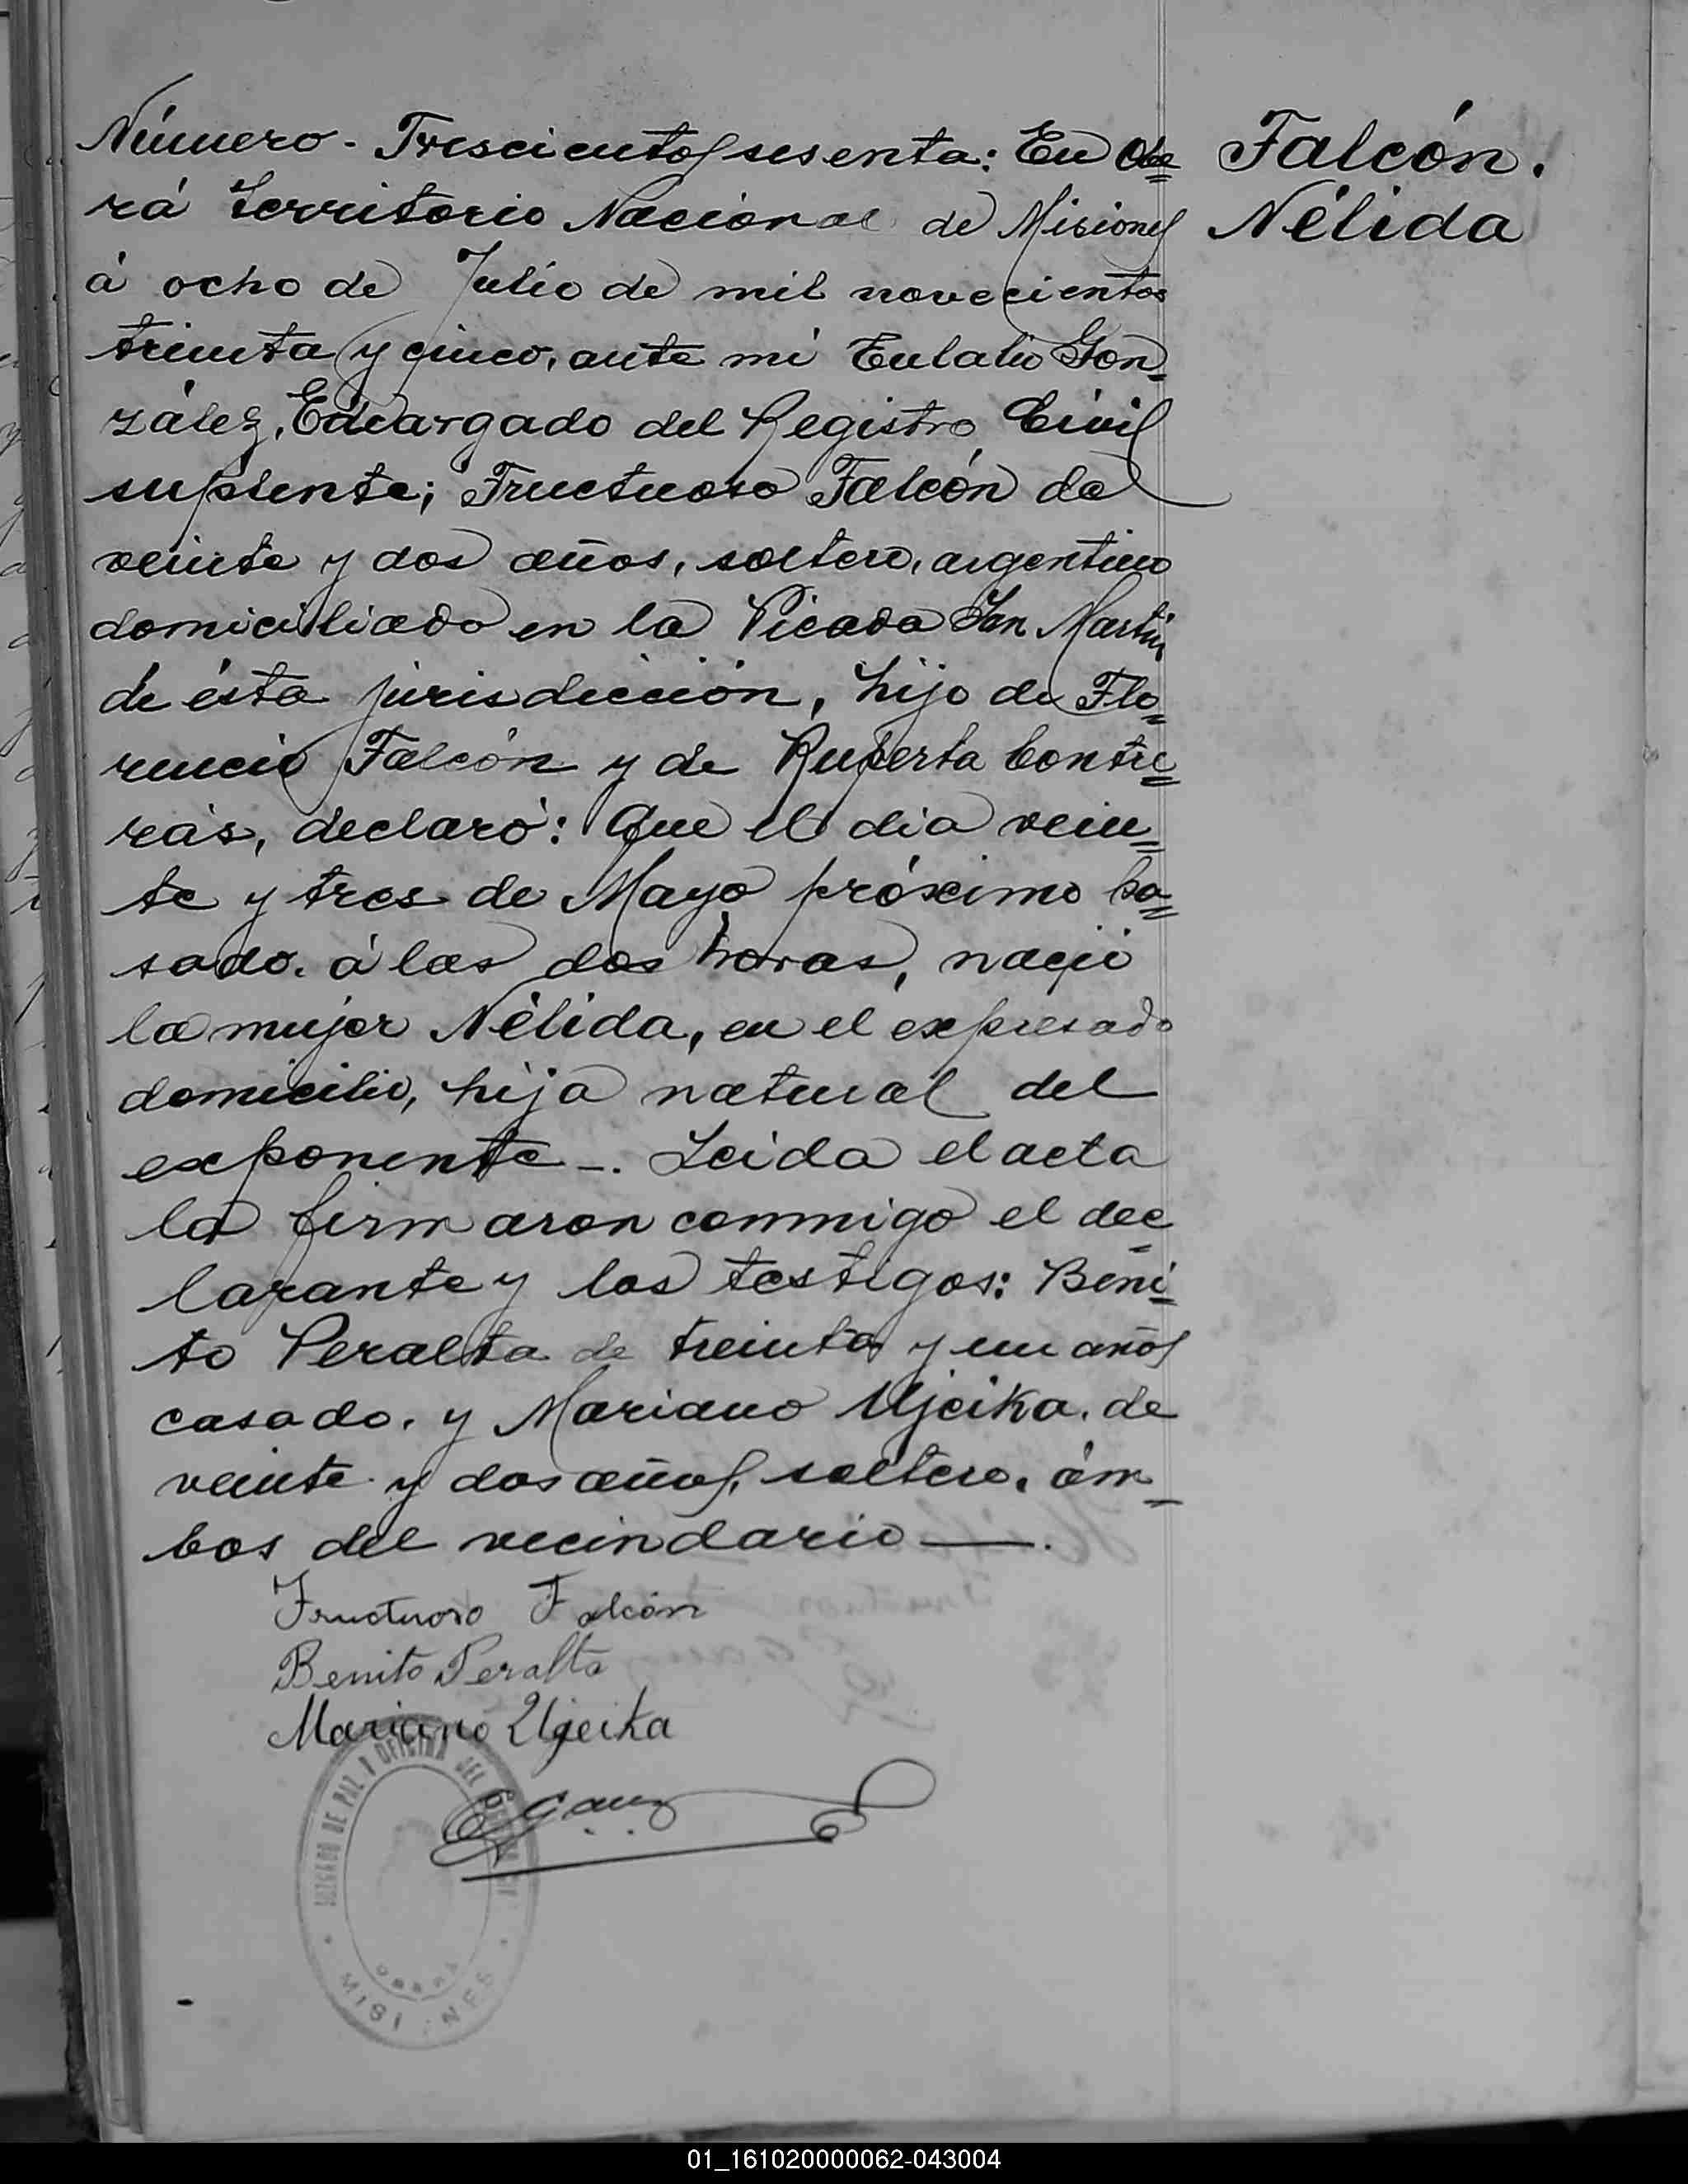 Número - Trescientos sesenta: En Obe=
rá Territorio Nacional de Misiones
á ocho de Julio de mil novecientos
treinta y cinco, ante mi Eulalio Gon=
zález, Encargado del Registro Civil
suplente; Fructuoso Falcón de
veinte y dos años, soltero, argentino
domiciliado en la Picada San Martín
de ésta jurisdicción, hijo de Flo=
rencio Falcón y de Ruperta Contre=
ras, declaró: Que el dia vein=
te y tres de Mayo próximo pa=
sado. á las dos horas, nació
la mujer Nélida, en el expresado
domicilio, hija natural del
exponente -. Leida el acta
la firmaron conmigo el dec=
larante y los testigos: Beni=
to Peralta de treinta y un años
casado. y Mariano Ujeika. de
veinte y dos años, soltero. ám=
bos del vecindario —.
Falcón.
Nélida
Fructuoso Falcón
Benito Peralta
Mariano Ujeika
JUZGADO DE PAZ Y OFICINA DEL
OBERÁ
MISIONES
01_161020000062-043004